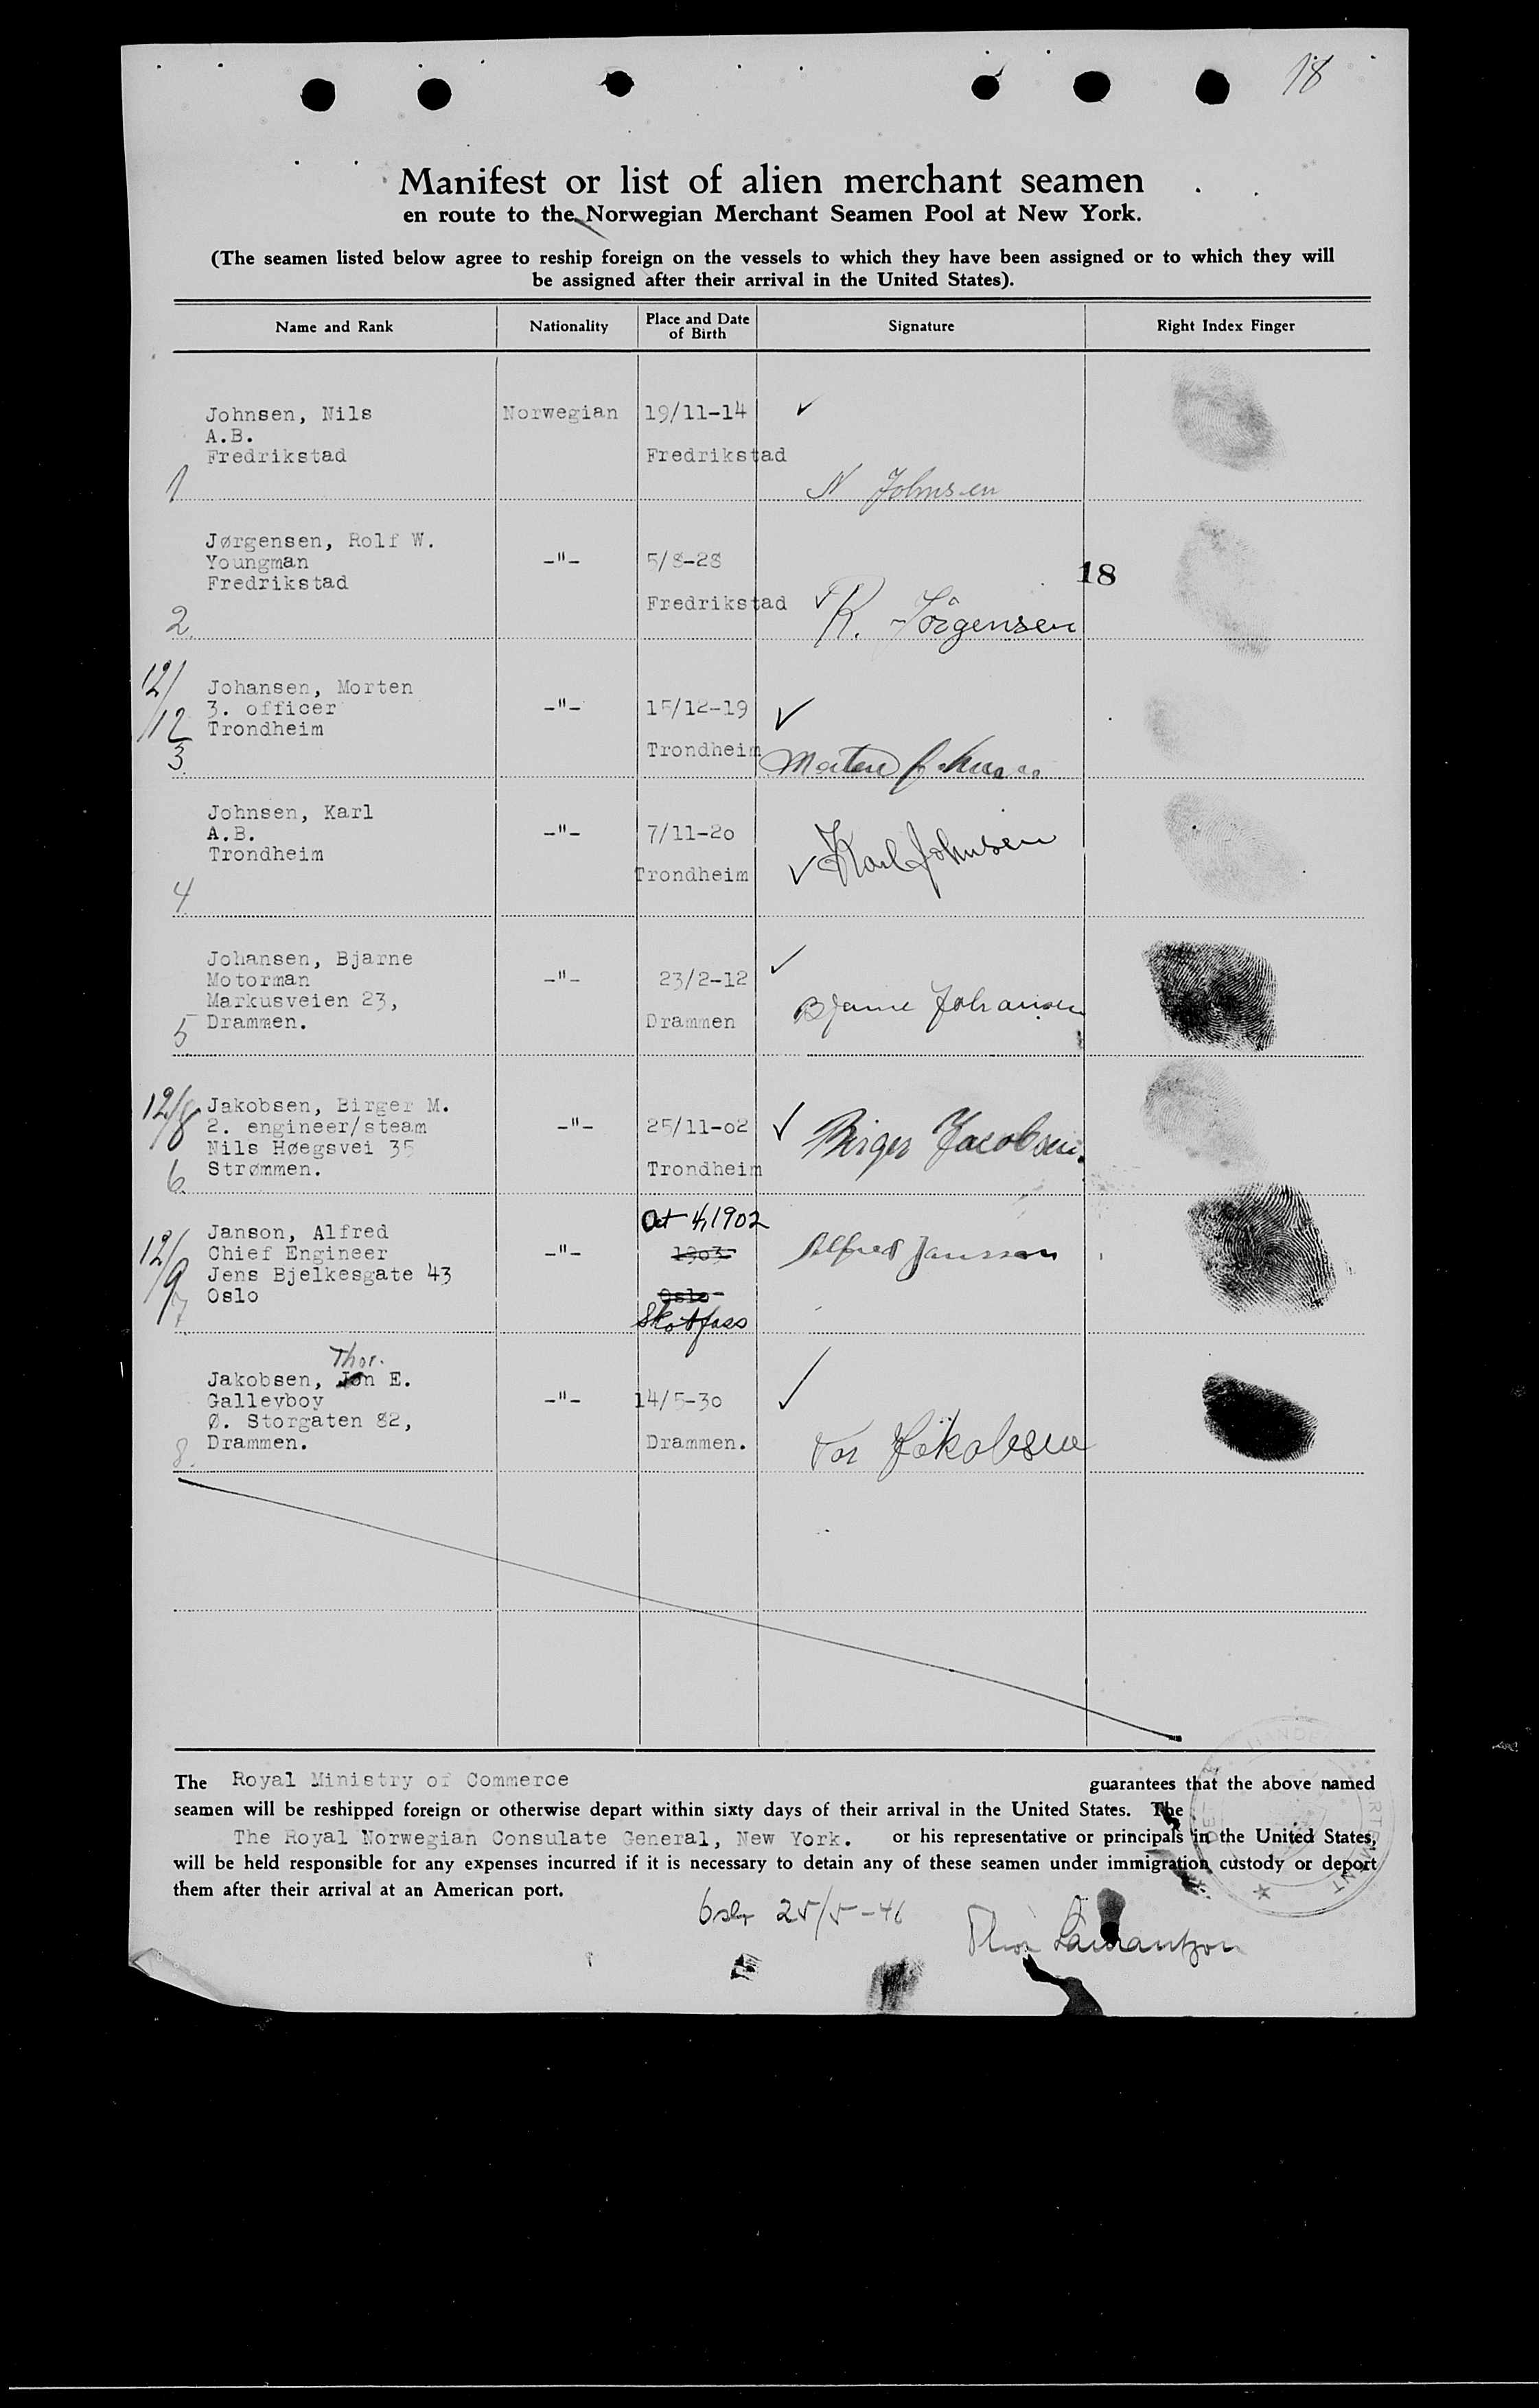 18
Manifest or list of alien merchant seamen
en route to the Norwegian Merchant Seamen Pool at New York.
(The seamen listed below agree to reship foreign on the vessels to which they have been assigned or to which they will
be assigned after their arrival in the United States).
Name and Rank Nationality Place and Date of Birth Signature Right Index Finger
Johnsen, Nils Norwegian 19/11-14 ✓
A.B.
Fredrikstad Fredrikstad
1 N Johnsen
Jørgensen, Rolf W.
Youngman -"- 5/8-28
Fredrikstad 18
Fredrikstad ✓ R. Jörgensen
2
12/
Johansen, Morten
3. officer -"- 15/12-19 ✓
12 Trondheim
3 Trondheim Morten Johansen
Johnsen, Karl
A.B. -"- 7/11-20
Trondheim ✓ Karl Johnsen
Trondheim
4
Johansen, Bjarne ✓
Motorman -"- 23/2-12
Markusveien 23,
5 Drammen. Drammen Bjarne Johansen
12/8 Jakobsen, Birger M.
2. engineer/steam -"- 25/11-02 ✓ Birger Jacobsen.
Nils Høegsvei 35
6 Strømmen. Trondheim
Oct 4, 1902
Janson, Alfred
12/9 Chief Engineer -"- 1903 Alfred Janssen
Jens Bjelkesgate 43
7 Oslo Oslo
Skotfoss
Thor.
Jakobsen, Jon E.
Galleyboy -"- 14/5-30 ✓
Ø. Storgaten 82,
8. Drammen. Drammen. Tor Jakobsen
The Royal Ministry of Commerce guarantees that the above named
seamen will be reshipped foreign or otherwise depart within sixty days of their arrival in the United States. The
The Royal Norwegian Consulate General, New York. or his representative or principals in the United States,
will be held responsible for any expenses incurred if it is necessary to detain any of these seamen under immigration custody or deport
them after their arrival at an American port.
Oslo 25/5-46